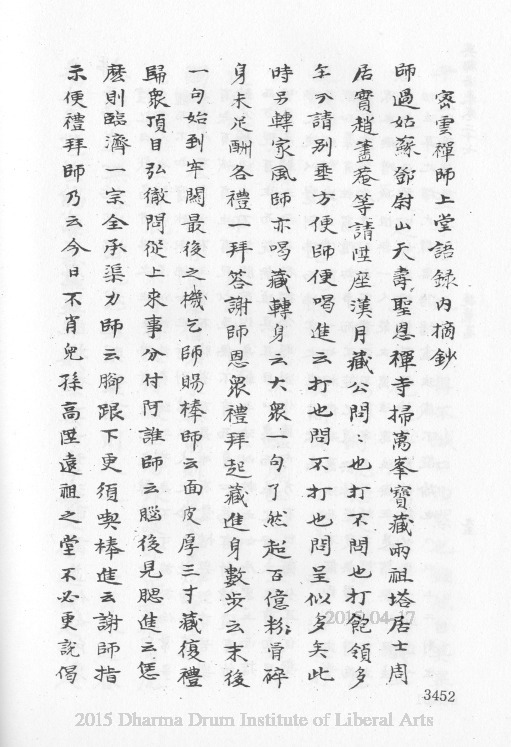 密雲禪師上堂語錄內摘鈔
師過姑蘇鄧尉山天壽聖恩禪寺掃萬峯寶藏兩祖塔居士周
居實趙蓋菴等請陞座漢月藏公問：也打不問也打飽領多
年今請別垂方便師便喝進云打也問不打也問呈似多矣此
時另轉家風師亦喝藏轉身云大衆一句了然超百億粉骨碎
身未足酬各禮一拜答謝師恩衆禮拜起藏進身數步云末後
一句始到牢關最後之機乞師賜棒師云面皮厚三寸藏復禮
歸衆頂目弘徹問從上來事分付阿誰師云腦後見腮進云恁
麽則臨濟一宗全承渠力師云腳跟下更須喫棒進云謝師指
示便禮拜師乃云今日不肖兒孫高陞遠祖之堂不必更說偈
2015-04-17
3452
2015 Dharma Drum Institute of Liberal Arts